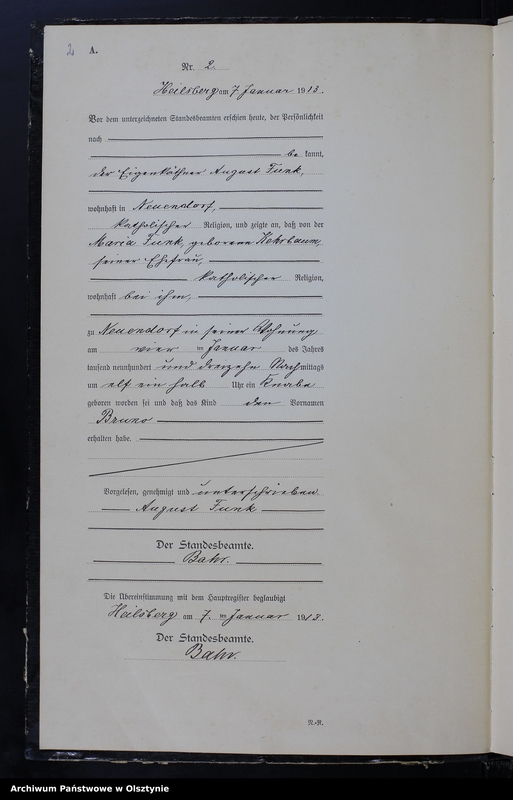 2
A.
Nr. 2.
Heilsberg am 7. Januar 1913.
Vor dem unterzeichneten Standesbeamten erschien heute, der Persönlichkeit
nach
be kannt,
der Eigenkäthner August Funk,
wohnhaft in Neuendorf,
katholischer Religion, und zeigte an, daß von der
Maria Funk, geborenen Kehrbaum,
seiner Ehefrau,
katholischer Religion,
wohnhaft bei ihm,
zu Neuendorf in seiner Wohnung
am vier ten Januar des Jahres
tausend neunhundert und dreizehn Nachmittags
um elf ein halb Uhr ein Knabe
geboren worden sei und daß das Kind den Vornamen
Bruno
erhalten habe.
Vorgelesen, genehmigt und unterschrieben
August Funk
Der Standesbeamte.
Bahr.
Die Übereinstimmung mit dem Hauptregister beglaubigt
Heilsberg am 7. ten Januar 1913.
Der Standesbeamte.
Bahr.
N.-R.
Archiwum Państwowe w Olsztynie